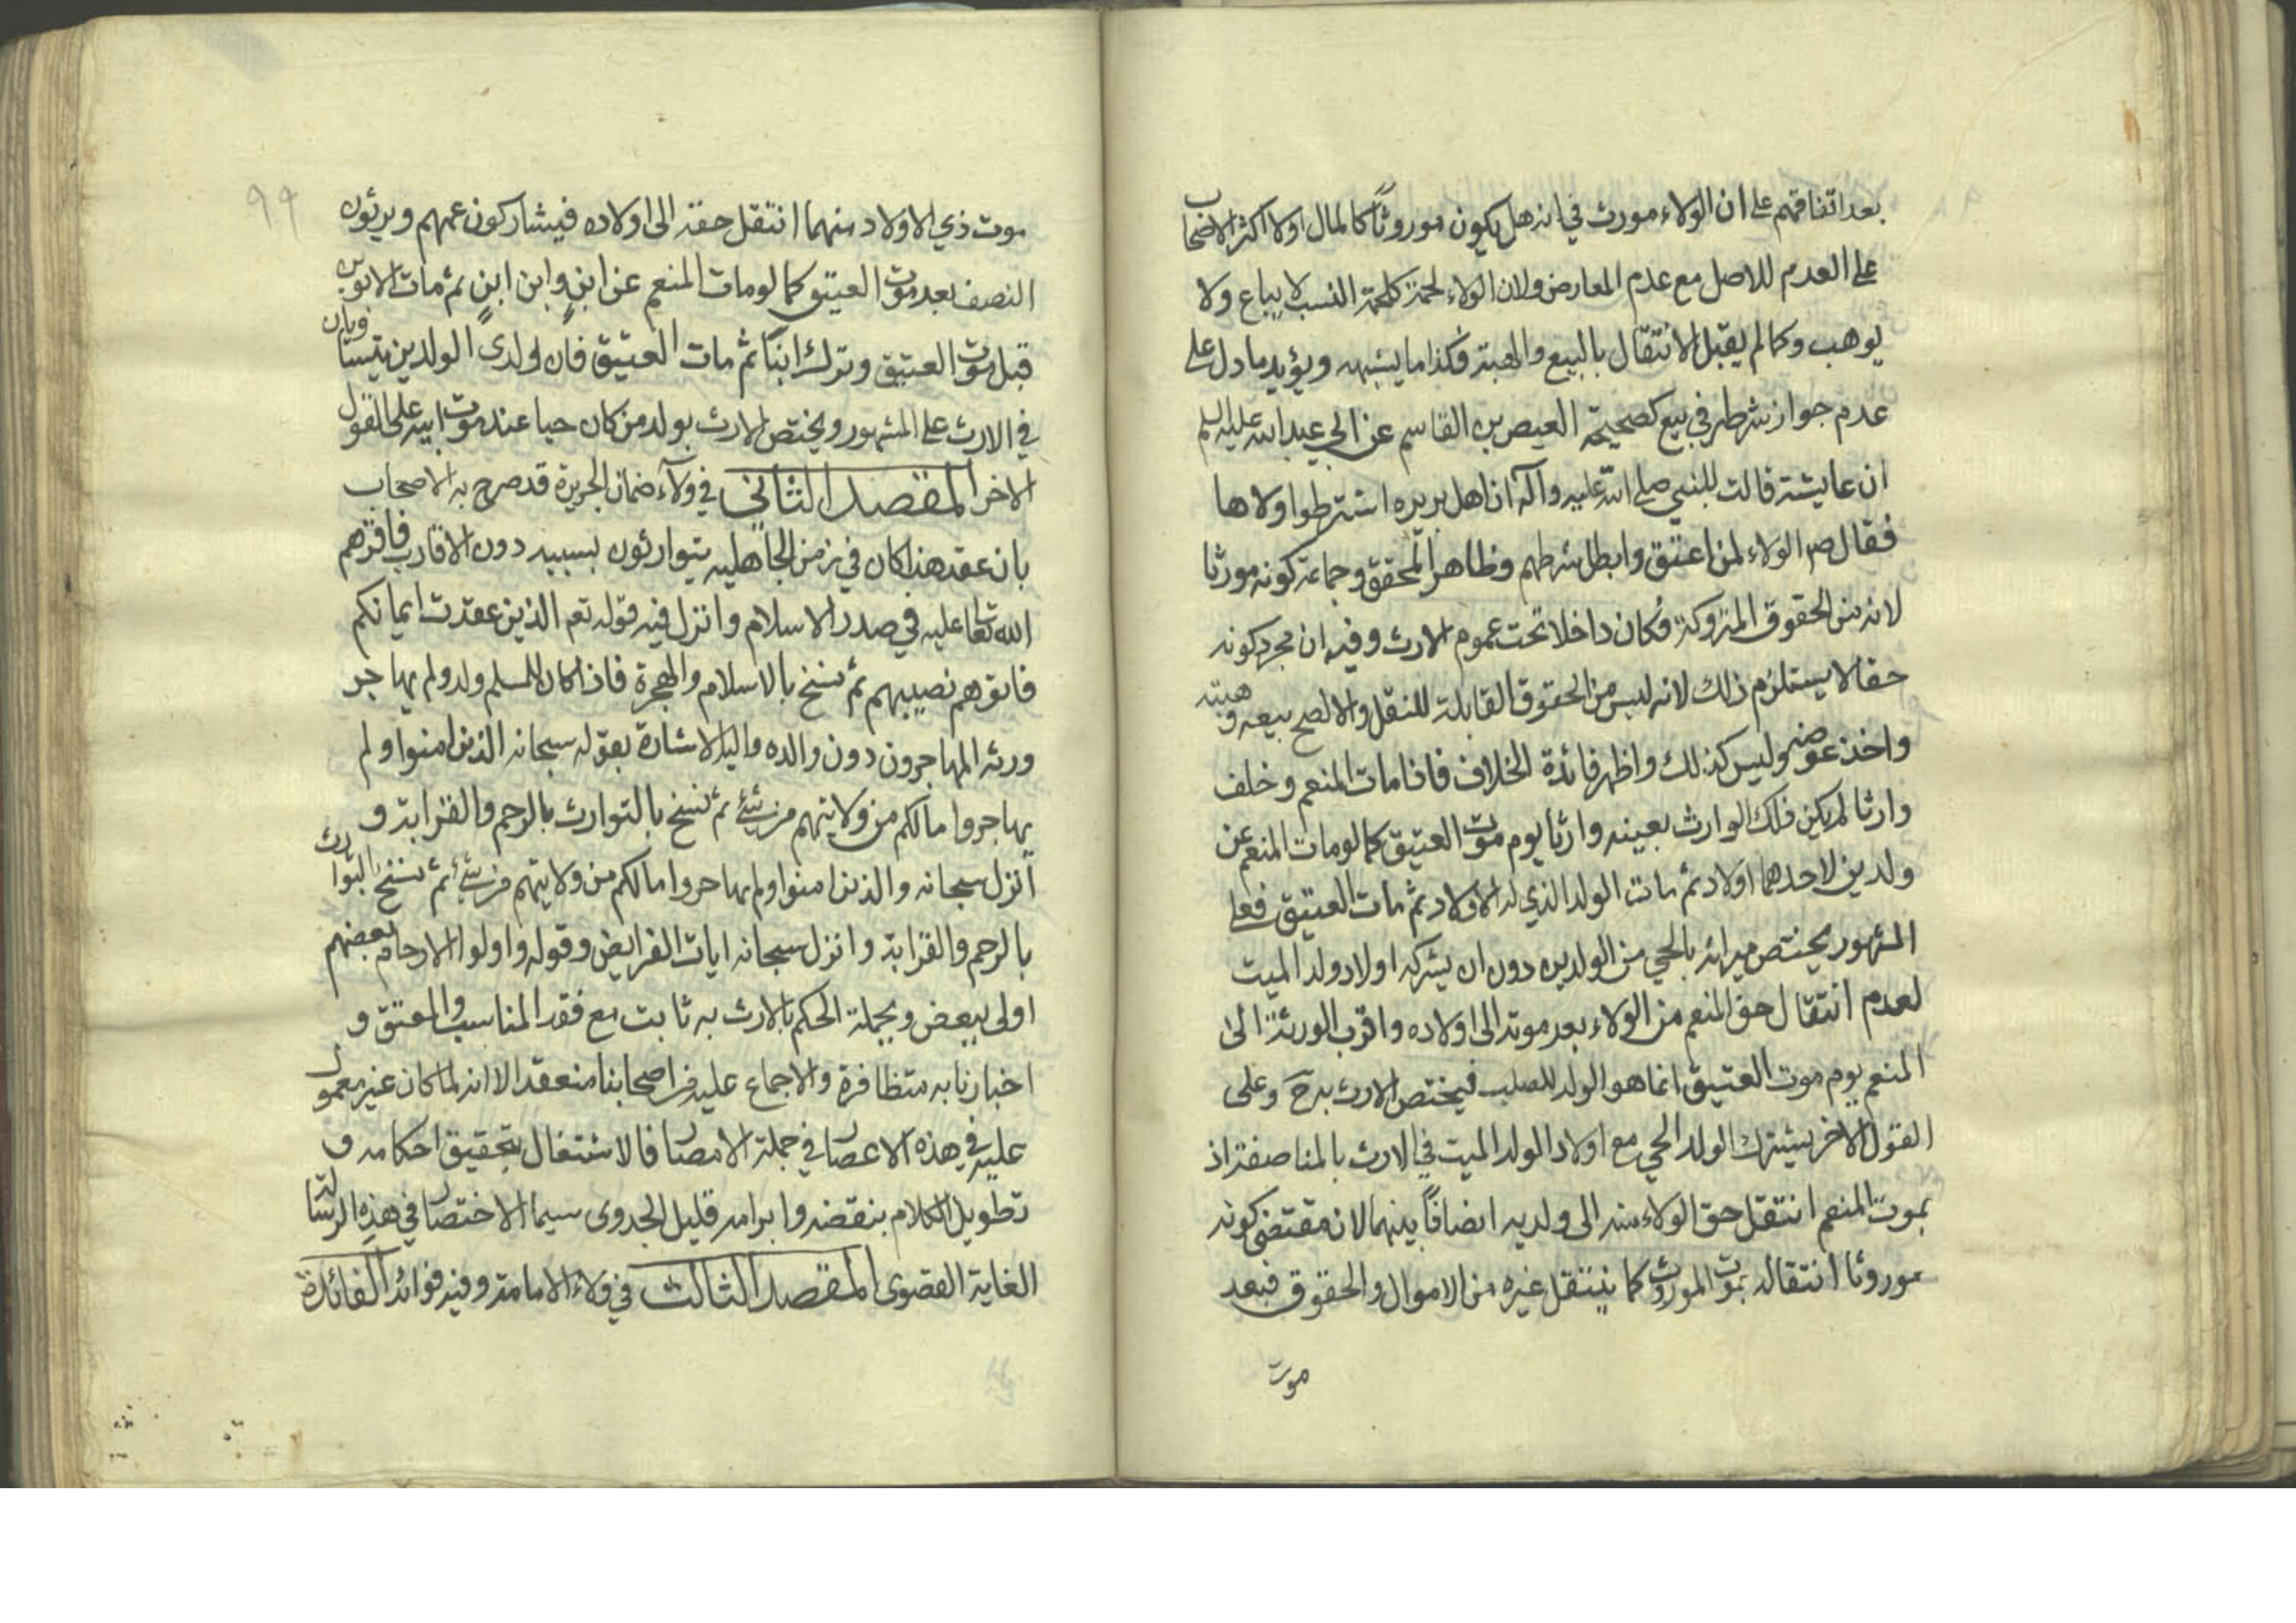 بعد اتفاقهم على ان الولاء مورث في انه هل يكون موروثاً كالمال اولا اكثر الاصحاب
على العدم للاصل مع عدم المعارض ولان الولاء لحمة كلحمة النسب لا يباع ولا
يوهب وكما لم يقبل الانتقال بالبيع والهبة فكذا ما يشبهه ويؤيد ما دل على
عدم جواز شرطه في بيع كصحيحة العيص بن القاسم عن ابي عبد الله عليه السلم
ان عايشة قالت للنبي صلى الله عليه وآله ان اهل بريره اشترطوا ولاها
فقال ص الولاء لمن اعتق وابطل شرطهم وظاهر المحقق وجماعة كونه مورثا
لانه من الحقوق المتروكة فكان داخلا تحت عموم الارث وفيه ان مجرد كونه
حقا لا يستلزم ذلك لانه ليس من الحقوق القابلة للنقل والا لصح بيعه وهبته
واخذ عوضه وليس كذلك واظهر فائدة الخلاف فاذا مات المنعم وخلف
وارثا لم يكن فلك الوارث بعينه وارثا يوم موت العتيق كما لو مات المنعم عن
ولدين لاحدهما اولاد ثم مات الولد الذي له الاولاد ثم مات العتيق فعلى
المشهور يختص ميراثه بالحي من الولدين دون ان يشركه اولاد ولد الميت
لعدم انتقال حق المنعم من الولاء بعد موته الى اولاده واقرب الورثة الى
المنعم يوم موت العتيق انما هو الولد للصلب فيختص الارث به ح وعلى
القول الاخر يشترك الولد الحي مع اولاد الولد الميت في الارث بالمناصفة اذ
بموت المنعم انتقل حق الولاء منه الى ولديه انصافاً بينهما لان مقتضى كونه
موروثا انتقاله بموت الموروث كما ينتقل غيره من الاموال والحقوق فبعد
موت
٩٩
موت ذي الاولاد منهما انتقل حقه الى اولاده فيشاركون عمهم ويرثون
النصف بعد موت العتيق كما لو مات المنعم عن ابنٍ وابن ابنٍ ثم مات الابن
قبل موت العتيق وترك ابناً ثم مات العتيق فان لولدى الولدين يتساويان
في الارث على المشهور ويختص الارث بولد من كان حيا عند موت ابيه على القول
الاخر المقصد الثانى في ولاء ضمان الجريرة قد صرح به الاصحاب
بان عقد هذا كان في زمن الجاهليه يتوارثون بسببه دون الاقارب فاقرهم
الله تعالى عليه في صدر الاسلام وانزل فيه قوله تعم الذين عقدت ايمانكم
فاتوهم نصيبهم ثم نسخ بالاسلام والهجرة فاذا كان للمسلم ولد ولم يهاجر
ورثه المهاجرون دون والده واليه الاشارة بقوله سبحانه الذين امنوا ولم
يهاجروا مالكم من ولايتهم من شئ ثم نسخ بالتوارث بالرحم والقرابة و
انزل سبحانه والذين امنوا ولم يهاجروا مالكم من ولايتهم من شئ ثم نسخ التوارث
بالرحم والقرابة وانزل سبحانه ايات الفرايض وقوله واولوا الارحام بعضهم
اولى ببعض وبجملة الحكم بالارث به ثابت مع فقد المناسب والمعتق و
اخبارنا به متظافرة والاجماع عليه من اصحابنا منعقد الا انه لما كان غير معمول
عليه في هذه الاعصار في جملة الامصار فالاشتغال بتحقيق احكامه و
تطويل الكلام بنقضه وابرامه قليل الجدوى سيما الاختصار في هذه الرسالة
الغاية القصوى المقصد الثالث في ولاء الامامة وفيه فوائد الفائدة